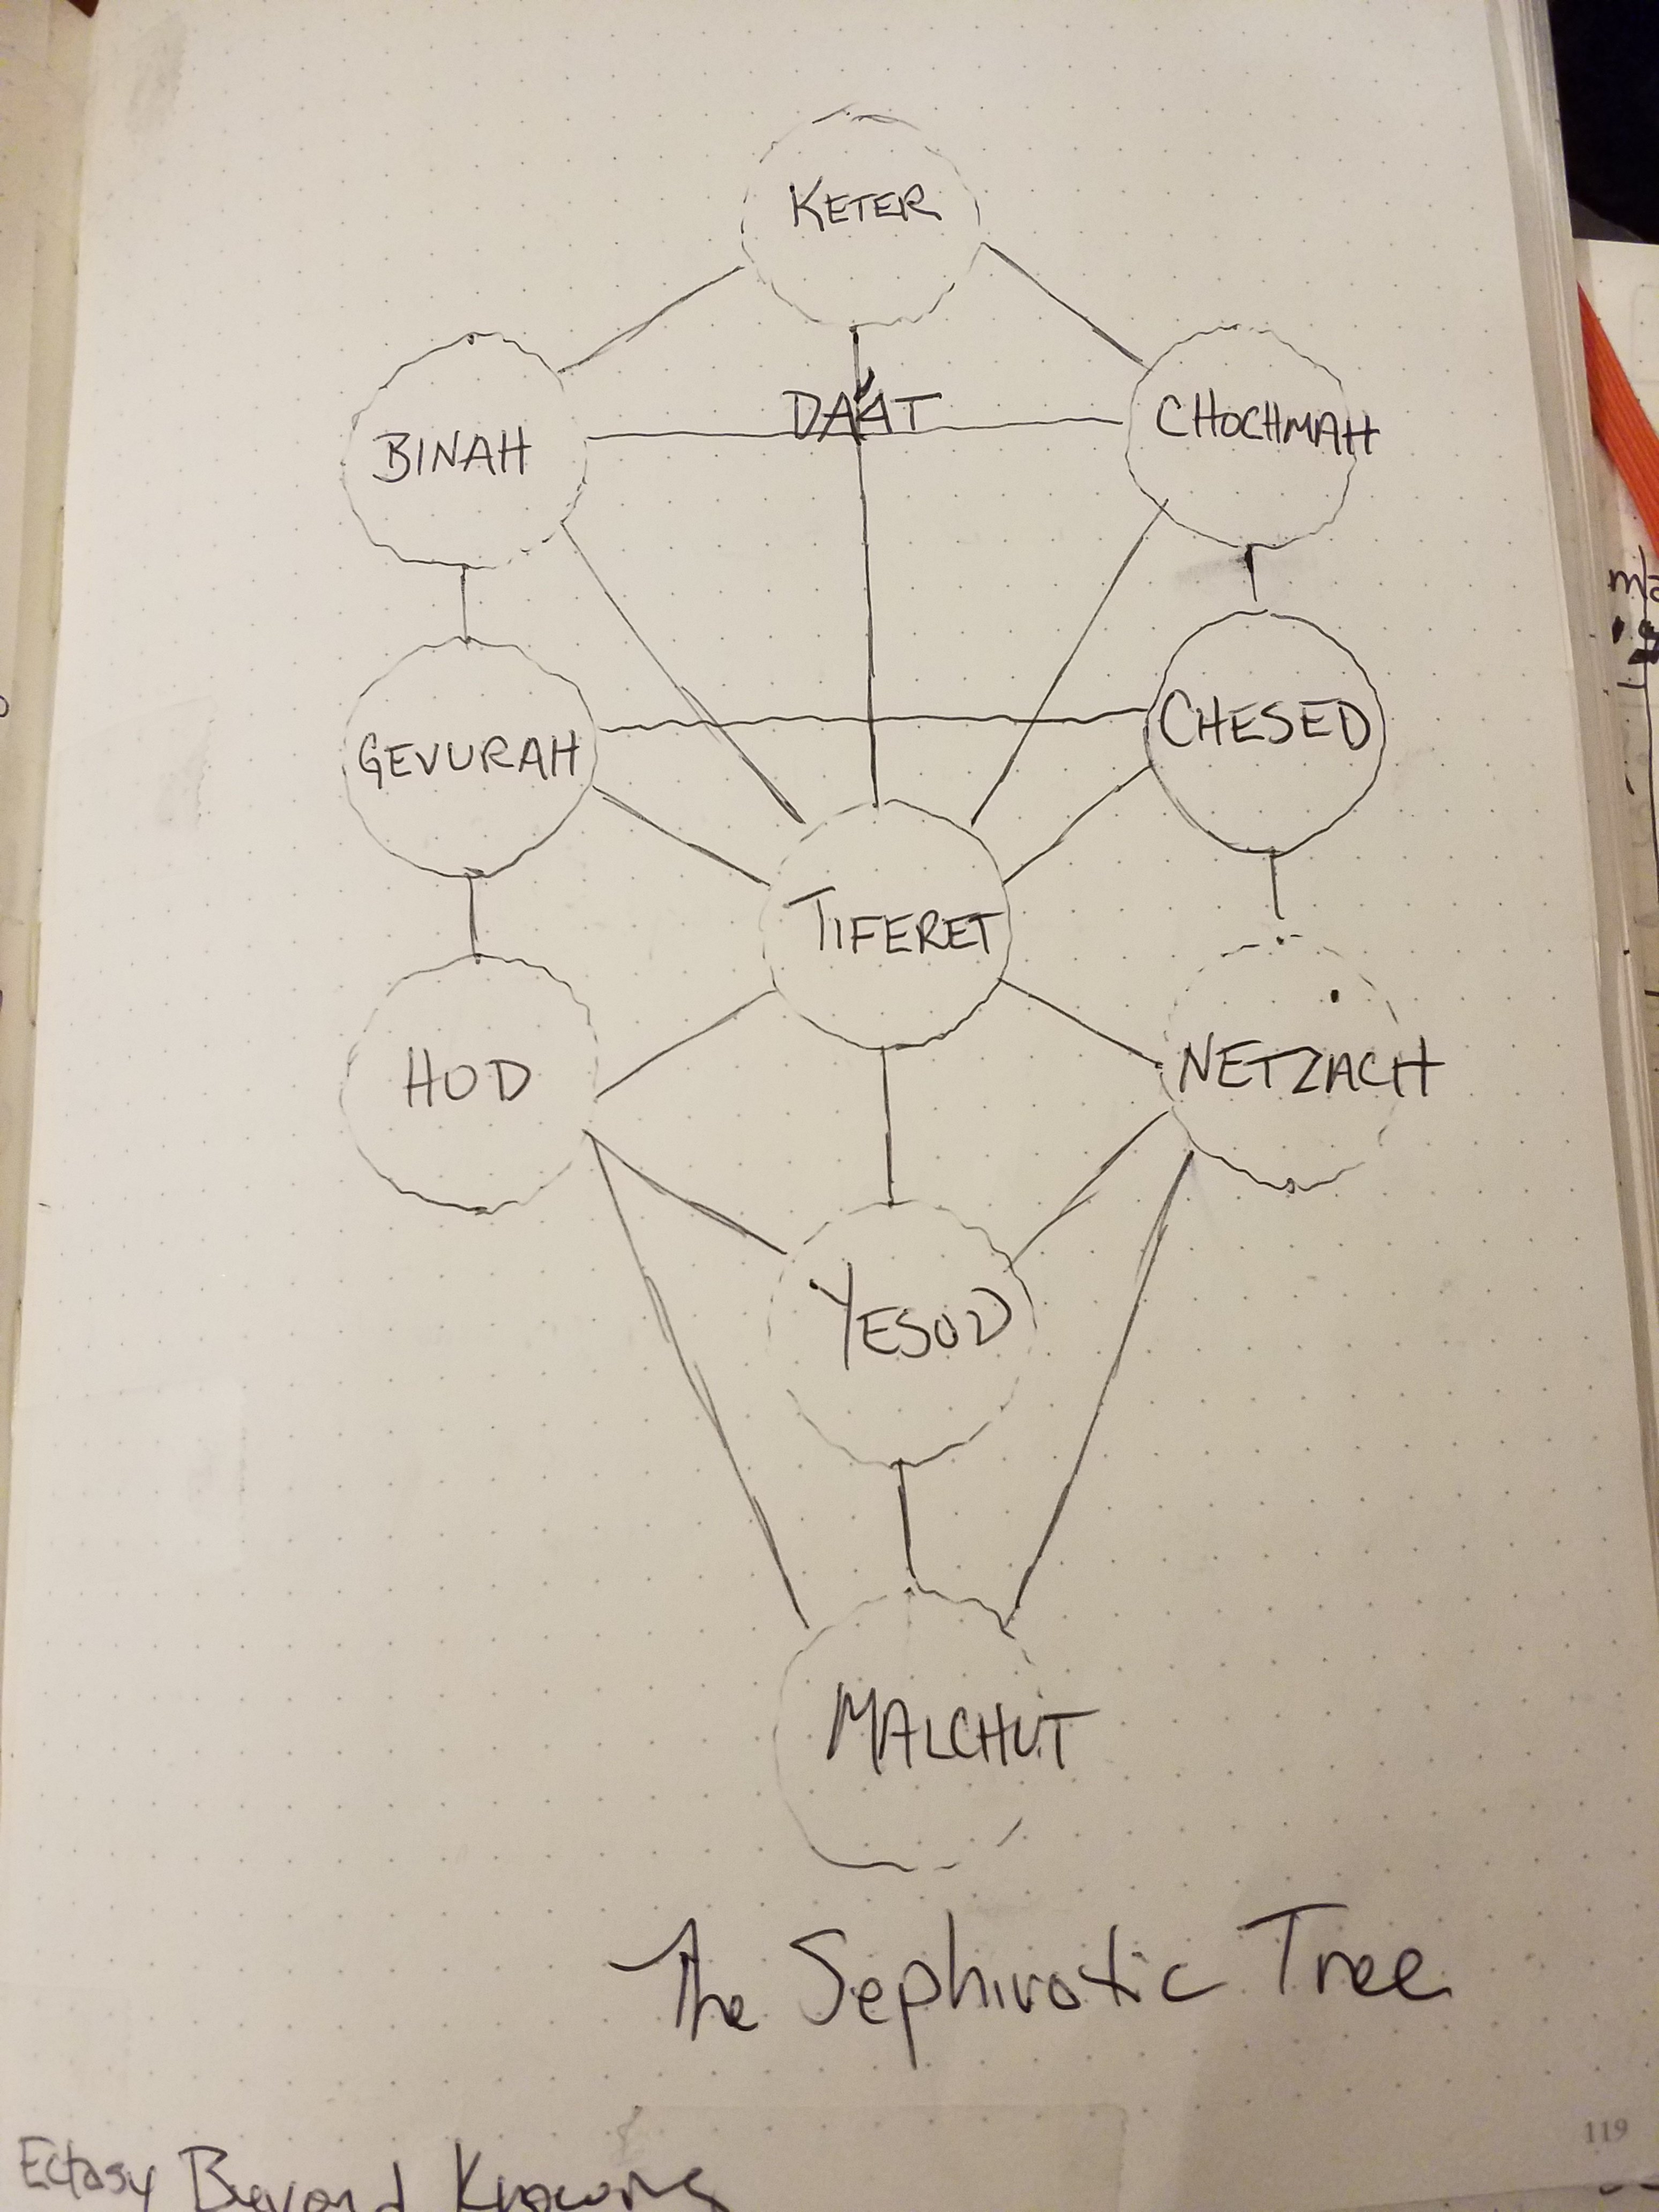 KETER
DA'AT
BINAH
CHOCHMAH
GEVURAH
CHESED
TIFERET
HOD
NETZACH
YESOD
MALCHUT
The Sephirotic Tree
119
Ectasy Beyond Knowing